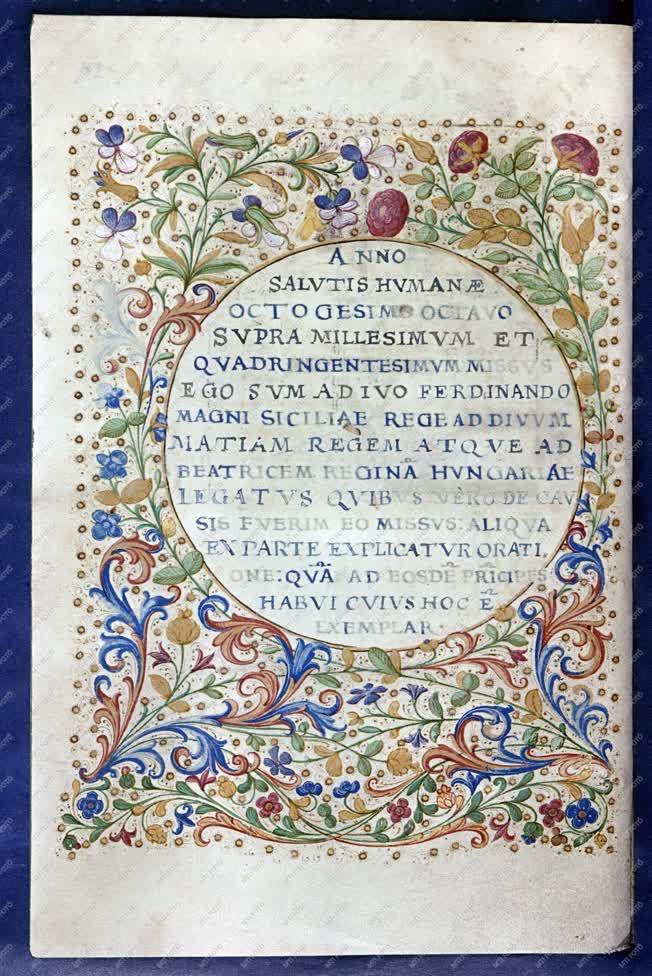 ANNO
SALVTIS HVMANÆ
OCTOGESIMO OCTAVO
SVPRA MILLESIMVM ET
QVADRINGENTESIMVM MISSVS
EGO SVM AD IVO FERDINANDO
MAGNI SICILIAE REGE AD DIVVM
MATIAM REGEM ATQVE AD
BEATRICEM REGINÃ HVNGARIAE
LEGATVS QVIBVS VERO DE CAV
SIS FVERIM EO MISSVS: ALIQVA
EX PARTE EXPLICATVR ORATI,
ONE: QVÃ AD EOSDẼ PRĨCIPES
HABVI CVIVS HOC Ẽ
EXEMPLAR